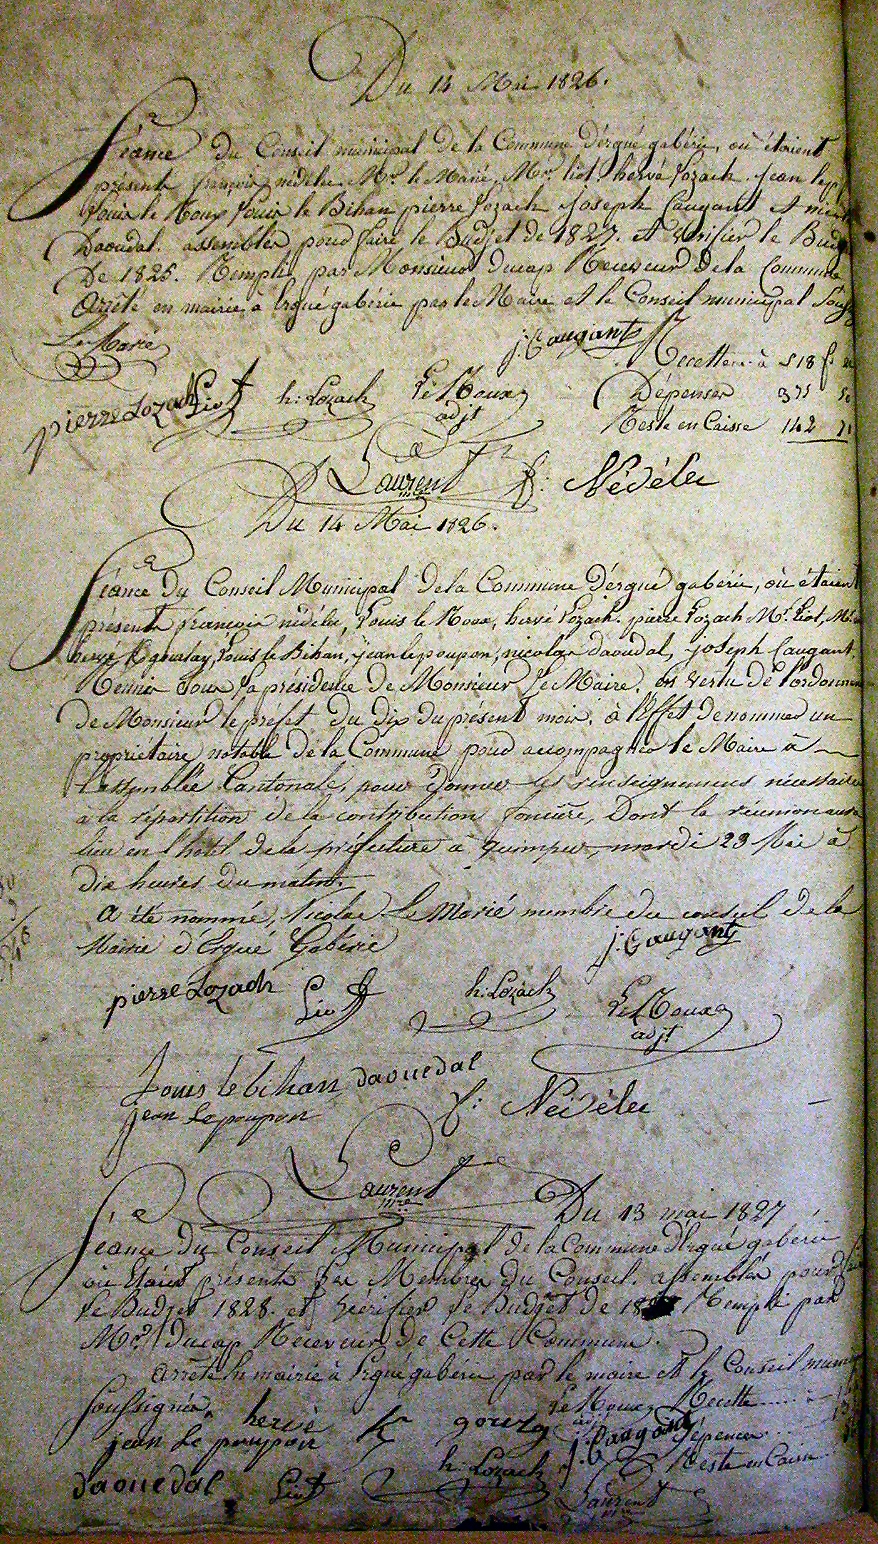 Du 14 Mai 1826.
Séance du Conseil municipal de la Commune d'ergué gabéric, où étaient
présents françois nédélec. Mr. le Maire, Mr. liot. hervé Lozach. jean lep
Louis le Roux Louis le Bihan pierre Lozach joseph Caugant et
Daoudal. assemblés pour faire le Budjet de 1827. et vérifier le Bud
De 1825. Rempli par Monsieur ducap Receveur de la Commune
Arrêté en mairie à Ergué gabéric par le Maire et le Conseil municipal
j: Caugant
Recettes à 518 f.
pierre Lozach Liot h: Lozach Le Roux
adjt
Dépenses 375 50
Reste en Caisse 142
Laurent
mre
f: Nédélec
Du 14 Mai 1826.
Séance du Conseil Municipal de la Commune d'ergué gabéric, où étaient
présents françois nédélec, Louis le Roux, hervé Lozach. pierre Lozach Mr. Liot,
hervé Louis le Bihan, jean lepoupon, nicolas daoudal, joseph Caugant.
Réunis sous la présidence de Monsieur Le Maire. en vertu de l'ordonn
de Monsieur le préfet du dix du présent mois. à l'Effet de nommer un
propriétaire notable de la Commune pour accompagner le Maire à
l'assemblée Cantonale, pour donner les renseignements nécessaires
a la répartition de la contribution foncière, Dont la réunion aura
lieu en l'hôtel de la préfecture à quimper, mardi 23 Mai à
dix heures du matin.
A été nommé, Nicolas Le Marié membre du conseil de la
Mairie d'Ergué Gabéric
j: Caugant
pierre Lozach Liot h: Lozach Le Roux
adjt
Louis le bihan daouedal
jean Le poupon f: Nédélec
Laurent
mre
Du 13 mai 1827
Séance du Conseil Municipal de la Commune d'Ergué gabéric
où Etaient présents Les Membres du Conseil. assemblés pour
le Budjet 1828. et Vérifier le Budjet de Rempli par
Mr. ducap Receveur de Cette Commune.
arrêté En mairie à Ergué gabéric par le maire et le Conseil muni
Soussignés. Le Roux Recette
adjt
hervé gorezq j: Caugant Dépenses
jean Le poupon
h: Lozach Reste en Caisse
daouedal Liot Laurent
mre